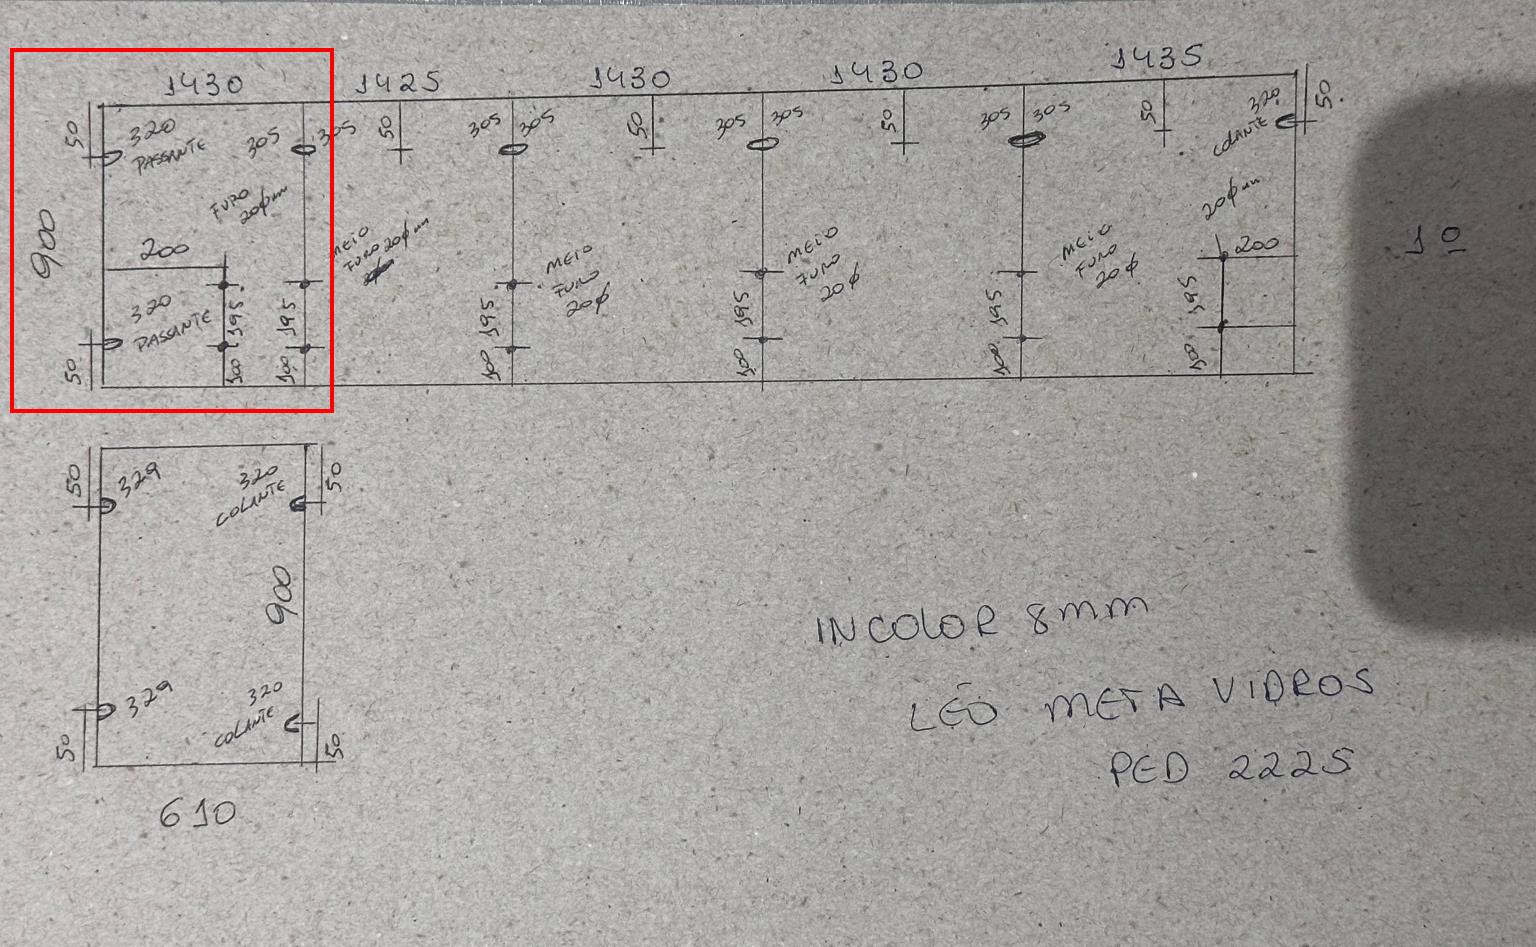 1430 1425 1430 1430 1435
50 320 PASSANTE 305 305 50 305 305 50 305 305 50 305 305 50 320 COLANTE 50
900
FURO 20ømm
MEIO FURO 20ømm
MEIO FURO 20ø
MEIO FURO 20ø
MEIO FURO 20ø
20ømm
200 200
320 PASSANTE
195 195 195 195 195 195
50 100 100 100 100 100 100
10
50 329 320 COLANTE 50
900
50 329 320 COLANTE 50
610
INCOLOR 8mm
LÉO META VIDROS
PED 2225